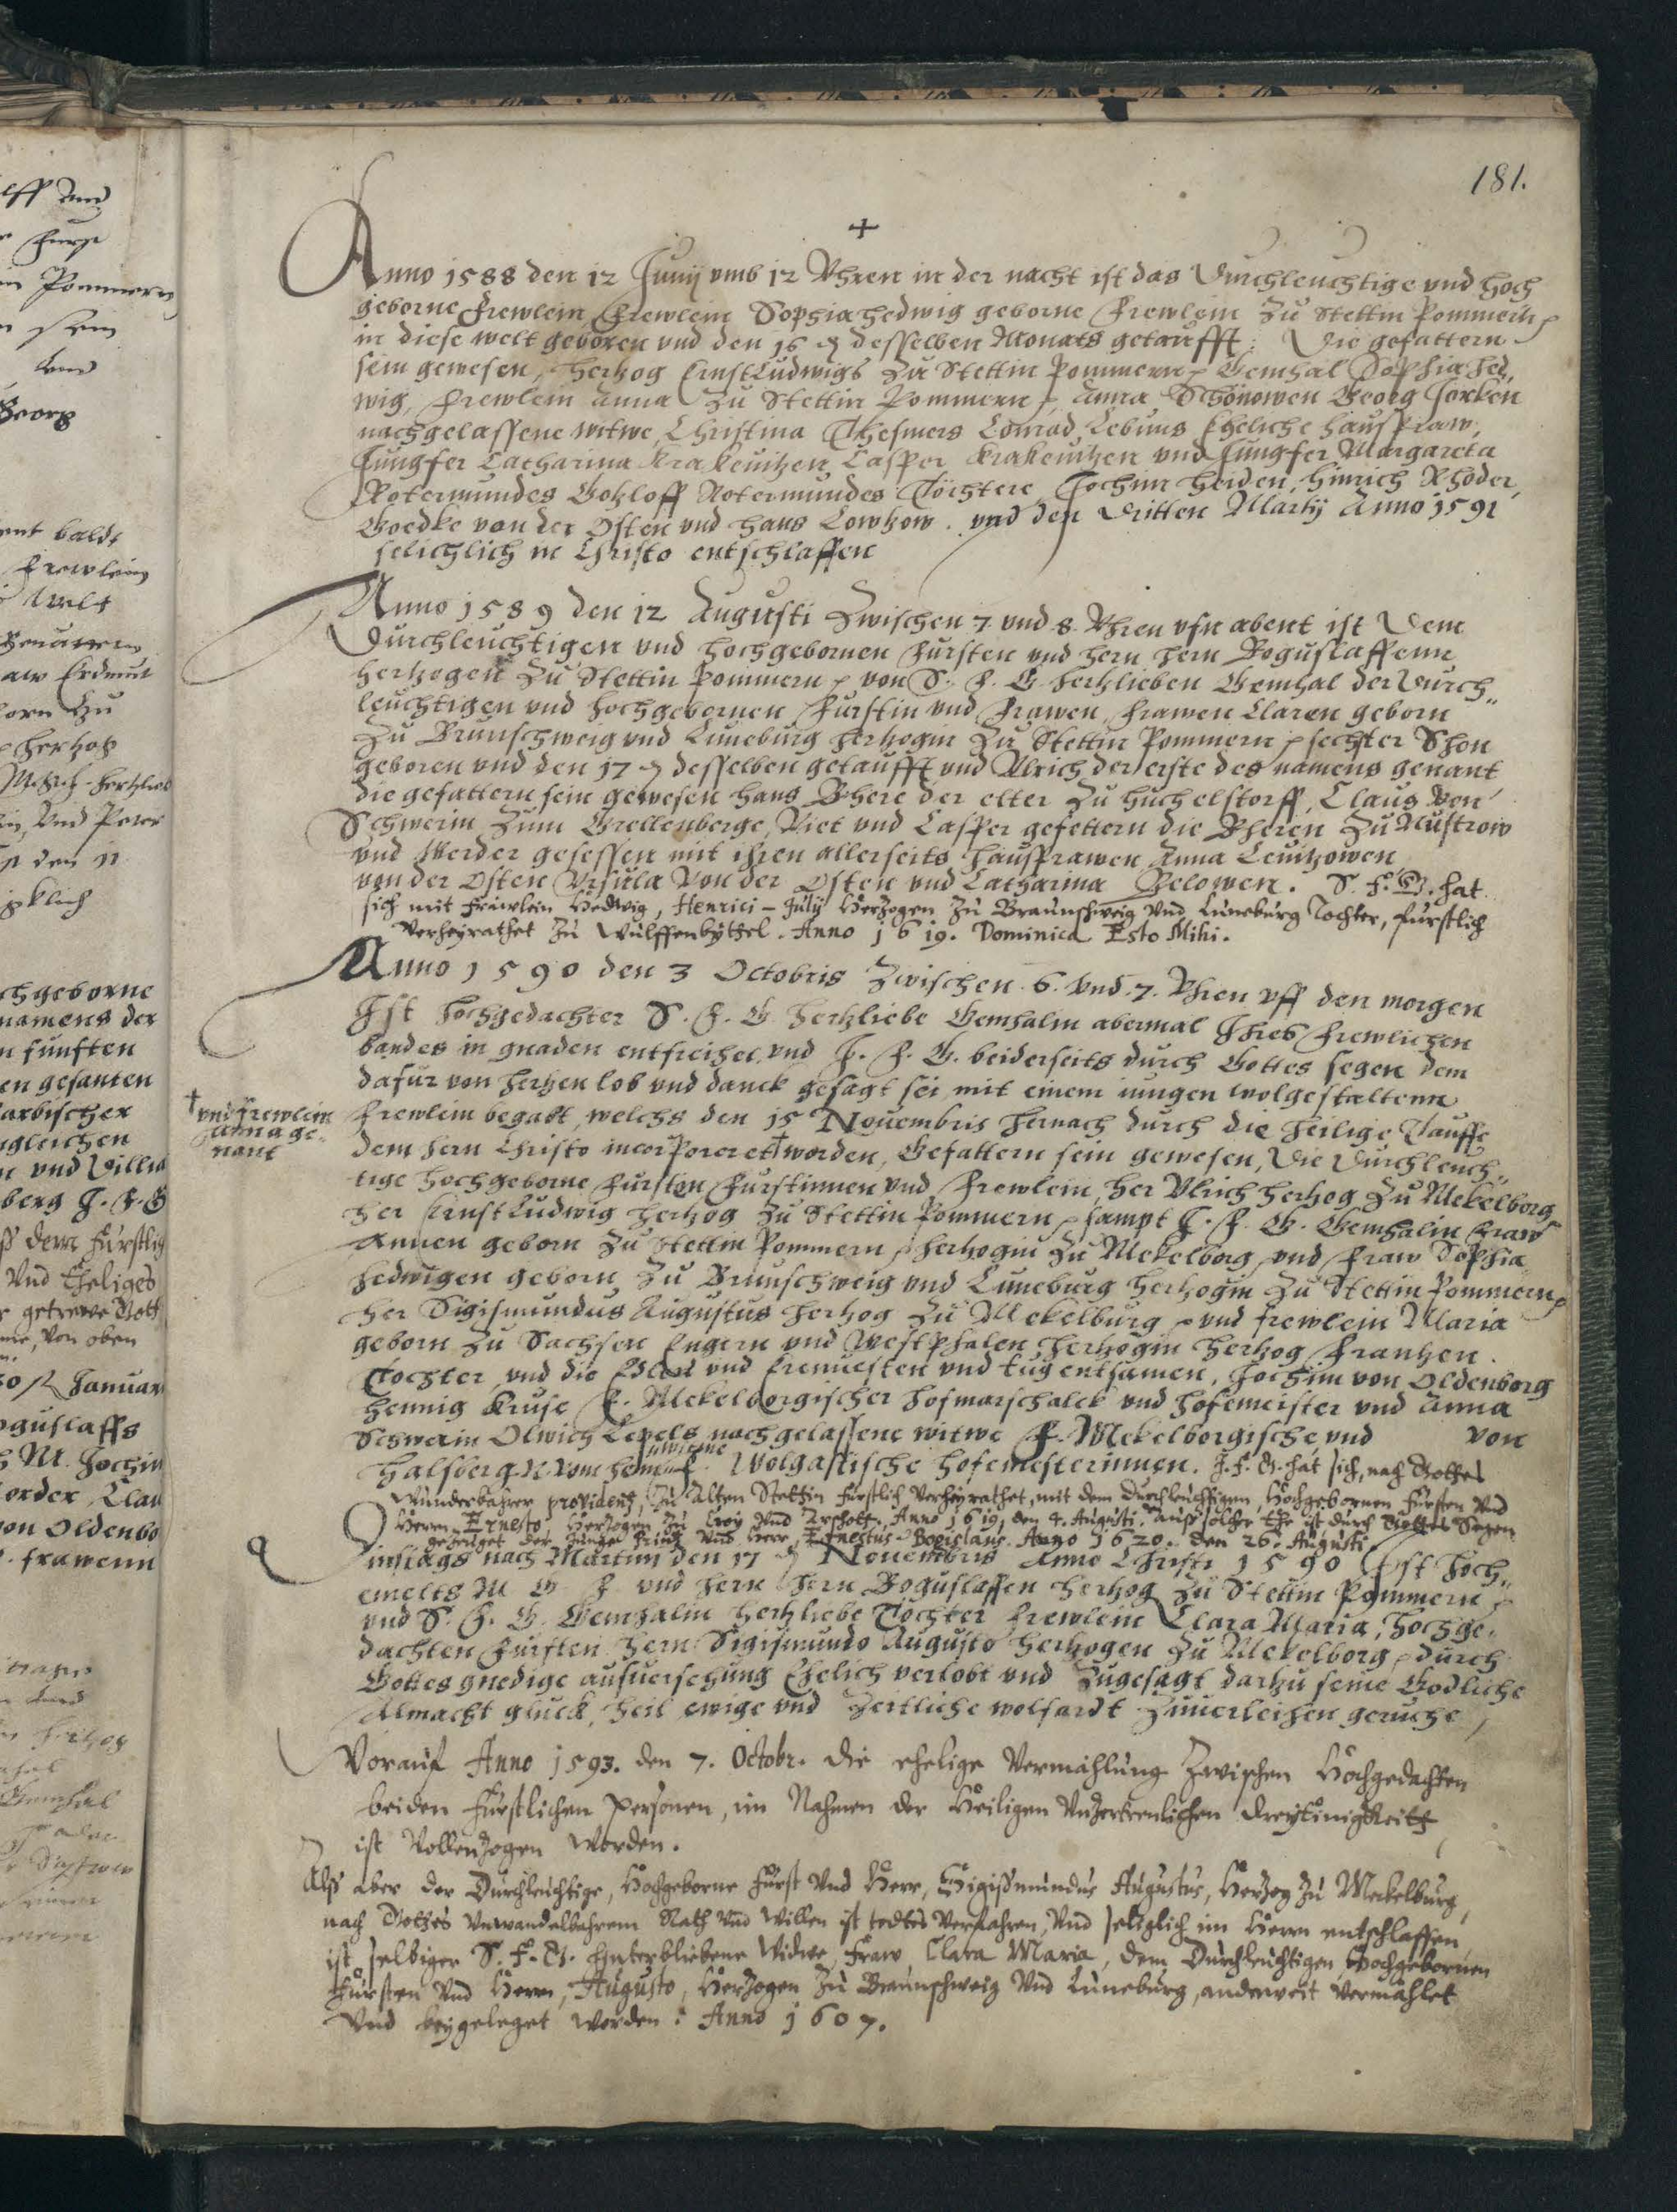 181.
+
Anno 1588 den 12 Junij vmb 12 Vhren in der nacht ist das Durchleuchtige vnd hoch
geborne frewlein, frewlein Sophia hedwig geborne frewlein zu Stettin Pommern
in diese welt geboren vnd den 16 desselben Monats getaufft: Die gefattern
sein gewesen, hertzog Ernst Ludwigs zu Stettin Pommern Gemhal Sophia hed,
wig, frewlein Anna zu Stettin Pommern, Anna Schönowen Georg Jorken
nachgelassene witwe, Christina Thesmers Conrad Lebuns Eheliche hausfraw,
Jungfer Catharina Krakeuitzen Casper Krakeuitzen vnd Jungfer Margareta
Rotermundes Gotzloff Rotermundes Töchtere, Jochim heiden, hinrich Rhöder,
Goedke von der Osten vnd hans Lowtzow. vnd den dritten Martij Anno 1591
selichlich in Christo entschlaffen
Anno 1589 den 12 Augusti Zwischen 7 vnd 8 Vhren vfn abent ist Dem
Durchleuchtigen vnd hochgebornen fursten vnd hern hern Boguslaffenn
hertzogen zu Stettin Pommern von S. F. G. hertzlieben Gemhal der Durch,,
leuchtigen vnd hochgebornen furstin vnd frawen, frawen Claren geborn
zu Brunschweig vnd Luneburg hertzogin zu Stettin Pommern sechster Shon
geboren vnd den 17 desselben getaufft vnd Vlrich der erste des namens genant
die gefattern sein gewesen hans Bhere der elter zu huchelstorff, Claus von
Schwerin zum Grellenberge, Viet vnd Casper gefettern die Bheren zu Nustrow
vnd Werder gesessen mit ihren allerseits hausfrawen Anna Leuitzowen
von der Osten Vrsula von der Osten vnd Catharina Belowen. S. F. G. hat
sich mit fräwlein Hedwig, Henrici-Julij Hertzogen zu Braunschweig vnd Luneburg Tochter, furstlich
verheyrathet zu Wulffenbyttel. Anno 1619. Dominica Esto Mihi.
Anno 1590 den 3 Octobris Zwischen 6. vnd 7. Vhren vff den morgen
Ist hochgedachter S. F. G. hertzliebe Gemhalin abermal Ihres frewlichen
bandes in gnaden entfreihet, vnd J. F. G. beiderseits durch Gottes segen dem
dafur von hertzen lob vnd danck gesagt sei mit einem iungen wolgestaltenn
frewlein begabt, welchs den 15 Nouembris hernach durch die heilige Tauffe
† vnd frewlein
Anna ge,
nant
dem hern Christo incorporeret † worden, Gefattern sein gewesen, Die Durchleuch,,
tige hochgeborne fursten furstinnen vnd frewlein, her Vlrich hertzog zu Mekelborg
her Ernst Ludwig hertzog zu Stettin Pommern sampt J. F. G. Gemhalin fraw
Annen geborn zu Stettin Pommern, hertzogin zu Mekelborg, vnd fraw Sophia
hedwigen geborn zu Brunschweig vnd Luneburg hertzogin zu Stettin Pommern
her Sigismundus Augustus hertzog zu Mekelburg vnd frewlein Maria
geborn zu Sachsen Engern vnd Westphalen hertzogin hertzog frantzen
Tochter, vnd die Edlen vnd Erenuesten vnd tugentsamen, Jochim von Oldenborg
hennig Kruse F. Mekelborgischer hofmarschalck vnd hofemeister vnd Anna
Schwerin Olwich Lepels nachgelassene witwe F. Mekelborgische vnd von
halsberg Wolgastische hofemesterinnen. J. F. G. hat sich, nach Gottes
Wunderbahrer providentz, zu Alten Stettin fürstlich verheyrathet, mit dem Durchleuchtigen, Hochgebornen Fürsten vnd
Herrn Ernesto, Hertzogen zu Croy vnd Arschott. Anno 1619. den 4. Augusti. Auß solcher Ehe ist durch Gottes Segen
gezeuget der Junger Printz vnd Herr Ernestus Bogislaus. Anno 1620. den 26. Augusti
Dinstags nach Martini den 17 Nouembris Anno Christi 1590 Ist hoch,,
emelts M G F vnd hern hern Boguslaffen hertzog zu Stettin Pommern
vnd S. F. G. Gemhalin hertzliebe Tochter frewlein Clara Maria, hochge,
dachten fursten hern Sigismundo Augusto hertzogen zu Mekelborg durch
Gottes gnedige aufuersehung Ehelich verlobt vnd zugesagt dartzu seine Godliche
Almacht gluck, heil ewige vnd zeitliche wolfardt zuuerleihen geruche
Worauf Anno 1593. den 7. Octobr. die ehelige Vermählung zwischen Hochgedachten
beiden fürstlichen Personen, im Nahmen der Heiligen Vnzertrenlichen Dreyeinigkeitt
ist Vollenzogen worden.
Alß aber der Durchleuchtige, Hochgeborne Fürst vnd Herr, Sigißmundus Augustus, Hertzog zu Meckelburg,
nach Gottes vnwandelbahrem Rath vnd willen ist todtes verfahren, vnd seliglich im Herrn entschlaffen
ist selbiger S. F. G. hinterbliebene Widwe, Fraw Clara Maria, dem Durchleuchtigen Hochgebornen
Fürsten vnd Herrn, Augusto, Hertzogen zu Braunschweig vnd Luneburg, anderweit vermählet
vnd beygeleget worden: Anno 1607.